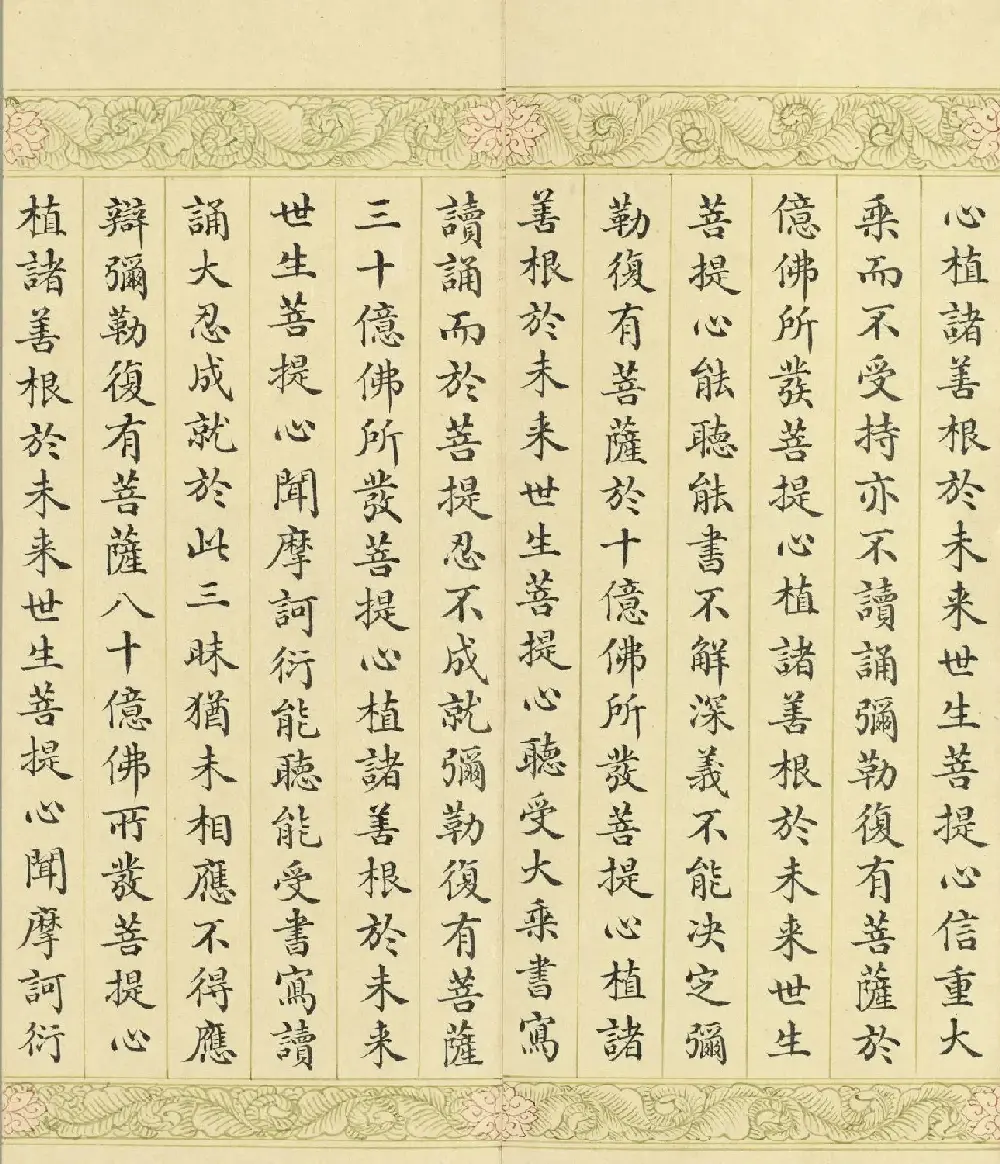 心植諸善根於未来世生菩提心信重大
乘而不受持亦不讀誦彌勒復有菩薩於
億佛所發菩提心植諸善根於未来世生
菩提心能聽能書不解深義不能决定彌
勒復有菩薩於十億佛所發菩提心植諸
善根於未来世生菩提心聽受大乘書寫
讀誦而於菩提忍不成就彌勒復有菩薩
三十億佛所發菩提心植諸善根於未来
世生菩提心聞摩訶衍能聽能受書寫讀
誦大忍成就於此三昧猶未相應不得應
辯彌勒復有菩薩八十億佛所發菩提心
植諸善根於未来世生菩提心聞摩訶衍